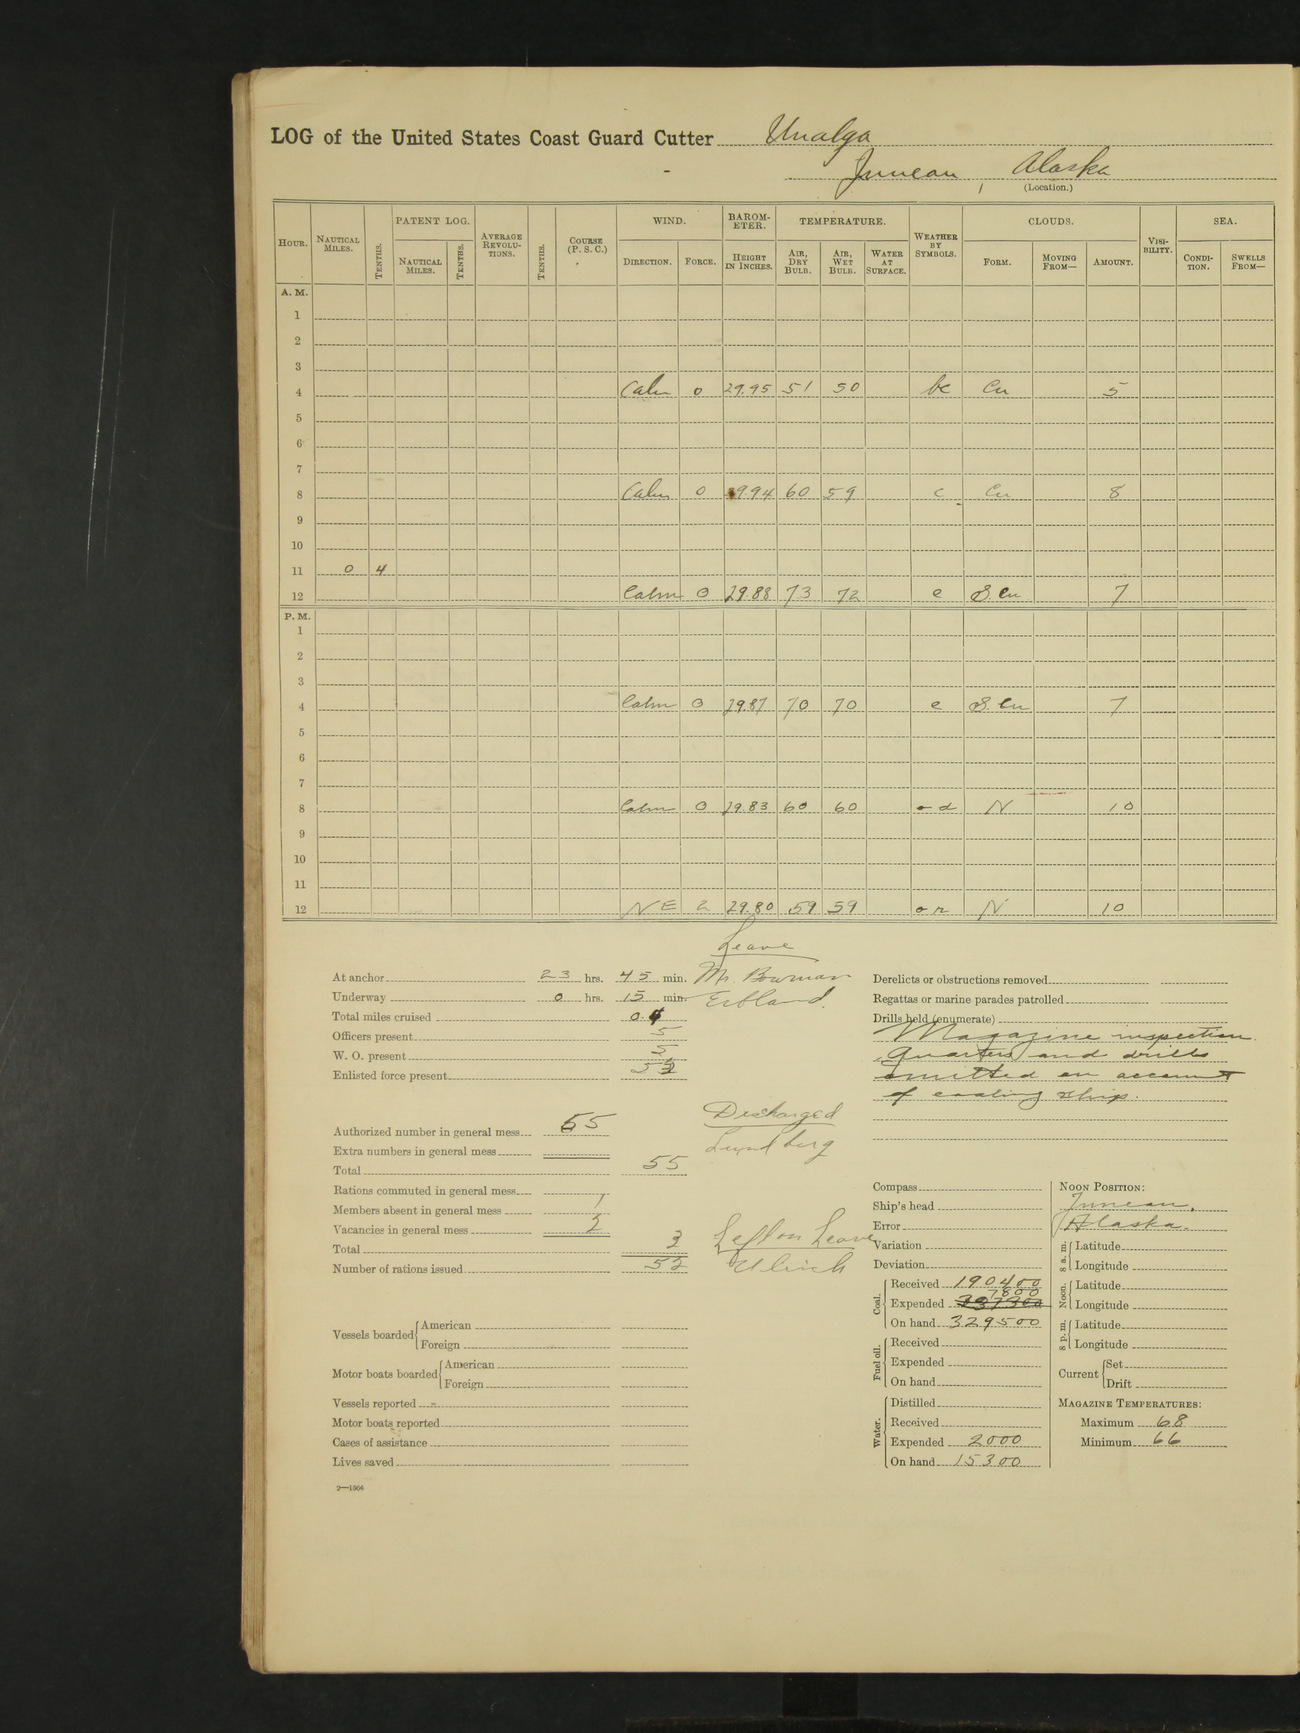 LOG of the United States Coast Guard Cutter Unalga
Juneau, Alaska
(Location.)
HOUR. NAUTICAL MILES. TENTHS. PATENT LOG. NAUTICAL MILES. TENTHS. AVERAGE REVOLUTIONS. TENTHS. COURSE (P. S. C.) WIND. DIRECTION. FORCE. BAROMETER. HEIGHT IN INCHES. TEMPERATURE. AIR, DRY BULB. AIR, WET BULB. WATER AT SURFACE. WEATHER BY SYMBOLS. CLOUDS. FORM. MOVING FROM— AMOUNT. VISIBILITY. SEA. CONDITION. SWELLS FROM—
A. M.
1
2
3
4 Calm 0 29.95 51 50 bc Cu 5
5
6
7
8 Calm 0 29.94 60 59 c Cu 8
9
10
11 0 4
12 Calm 0 29.88 73 72 c S. Cu 7
P. M.
1
2
3
4 Calm 0 29.87 70 70 c S. Cu 7
5
6
7
8 Calm 0 29.83 60 60 o d N 10
9
10
11
12 NE 2 29.80 59 59 o r N 10
Leave
Mr. Bowman
At anchor 23 hrs. 45 min.
Underway 0 hrs. 15 min.
Total miles cruised 0.4
Officers present 5
W. O. present 5
Enlisted force present 52
Discharged
Lundberg
Authorized number in general mess 55
Extra numbers in general mess
Total 55
Rations commuted in general mess
Members absent in general mess 1
Vacancies in general mess 2
Total 3
Number of rations issued 52
Left on Leave
Ulrich
Vessels boarded American
Foreign
Motor boats boarded American
Foreign
Vessels reported
Motor boats reported
Cases of assistance
Lives saved
2—1504
Derelicts or obstructions removed
Regattas or marine parades patrolled
Drills held (enumerate)
Magazine inspection.
Quarters and drills
omitted on account
of coaling ship.
Compass
Ship's head
Error
Variation
Deviation
Coal. Received 190400
Expended 7800
On hand 329500
Fuel oil. Received
Expended
On hand
Water. Distilled
Received
Expended 2000
On hand 15300
NOON POSITION:
Juneau,
Alaska.
8 a. m. Latitude
Longitude
Noon. Latitude
Longitude
8 p. m. Latitude
Longitude
Current Set
Drift
MAGAZINE TEMPERATURES:
Maximum 68
Minimum 66